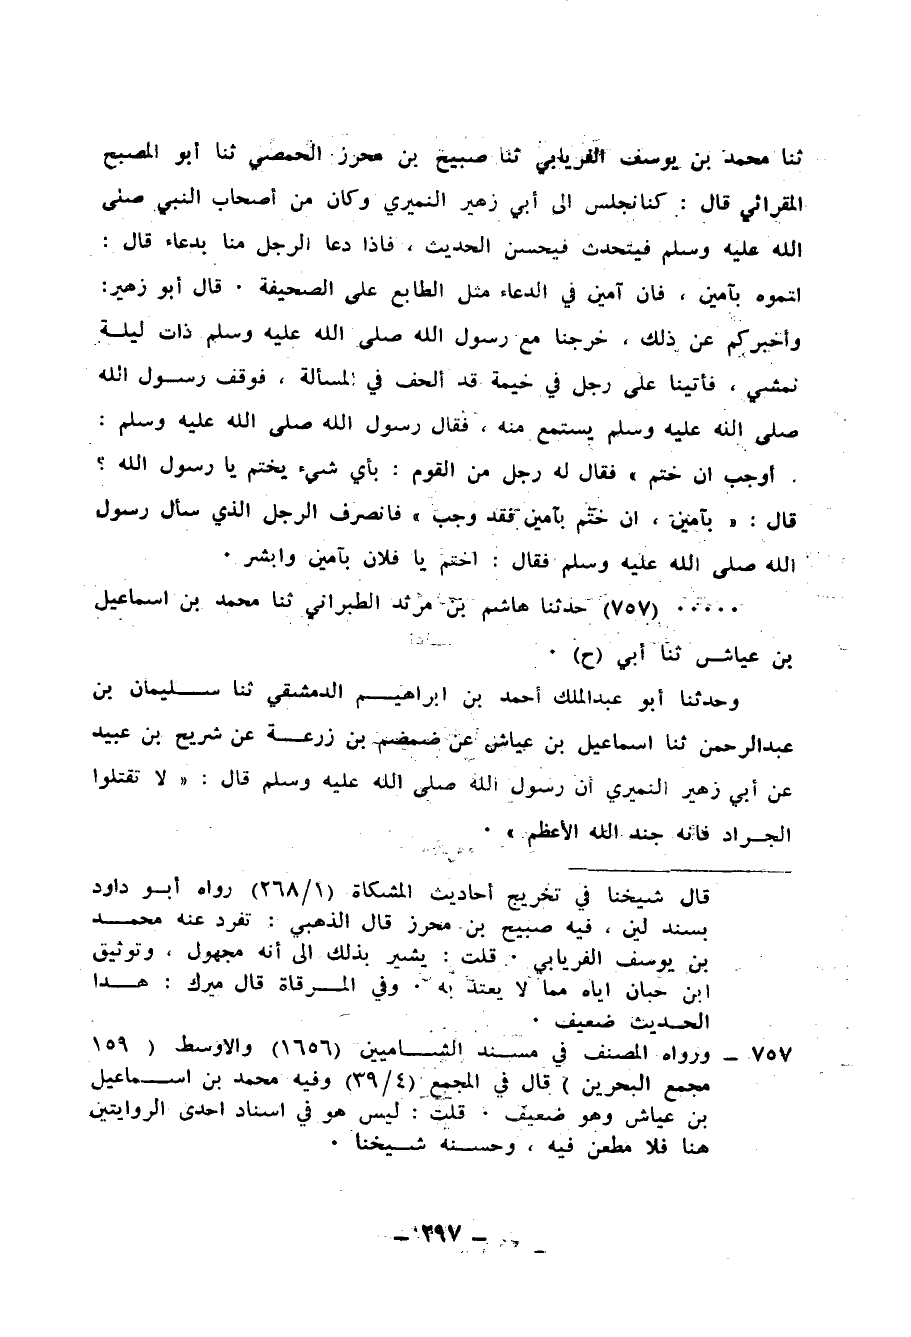 ثنا محمد بن يوسف الفريابي ثنا صبيح بن محرز الحمصي ثنا أبو المصبح
المقرائي قال : كنانجلس الى أبي زهير النميري وكان من أصحاب النبي صلى
الله عليه وسلم فيتحدث فيحسن الحديث ، فاذا دعا الرجل منا بدعاء قال :
اتموه بآمين ، فان آمين في الدعاء مثل الطابع على الصحيفة . قال أبو زهير :
وأخبركم عن ذلك ، خرجنا مع رسول الله صلى الله عليه وسلم ذات ليلة
نمشي ، فأتينا على رجل في خيمة قد ألحف في المسألة ، فوقف رسول الله
صلى الله عليه وسلم يستمع منه ، فقال رسول الله صلى الله عليه وسلم :
أوجب ان ختم » فقال له رجل من القوم : بأي شيء يختم يا رسول الله ؟
قال : « بآمين ، ان ختم بآمين فقد وجب » فانصرف الرجل الذي سأل رسول
الله صلى الله عليه وسلم فقال : اختم يا فلان بآمين وابشر .
..... (٧٥٧) حدثنا هاشم بن مرثد الطبراني ثنا محمد بن اسماعيل
بن عياش ثنا أبي (ح) .
وحدثنا أبو عبدالملك أحمد بن ابراهيم الدمشقي ثنا سليمان بن
عبدالرحمن ثنا اسماعيل بن عياش عن ضمضم بن زرعة عن شريح بن عبيد
عن أبي زهير النميري أن رسول الله صلى الله عليه وسلم قال : « لا تقتلوا
الجراد فانه جند الله الأعظم » .
قال شيخنا في تخريج أحاديث المشكاة (٢٦٨/١) رواه أبو داود
بسند لين ، فيه صبيح بن محرز قال الذهبي : تفرد عنه محمد
بن يوسف الفريابي . قلت : يشير بذلك الى أنه مجهول ، وتوثيق
ابن حبان اياه مما لا يعتد به . وفي المرقاة قال ميرك : هذا
الحديث ضعيف .
٧٥٧ – ورواه المصنف في مسند الشاميين (١٦٥٦) والاوسط ( ١٥٩
مجمع البحرين ) قال في المجمع (٣٩/٤) وفيه محمد بن اسماعيل
بن عياش وهو ضعيف . قلت : ليس هو في اسناد احدى الروايتين
هنا فلا مطعن فيه ، وحسنه شيخنا .
– ٢٩٧ –